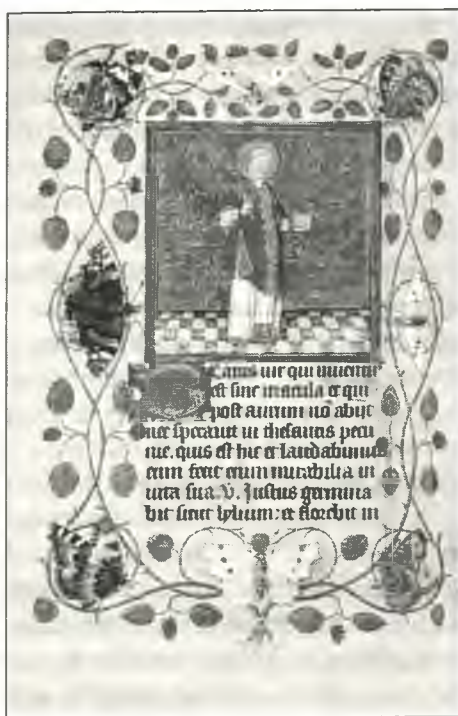 eatus vir qui inventus
est sine macula et qui
post aurum no abijt
nec speravit in thesauris pecu
nie. quis est hic et laudabimus
eum fecit enim mirabilia in
vita sua. v. Justus germina
bit sicut lylium: et florebit in